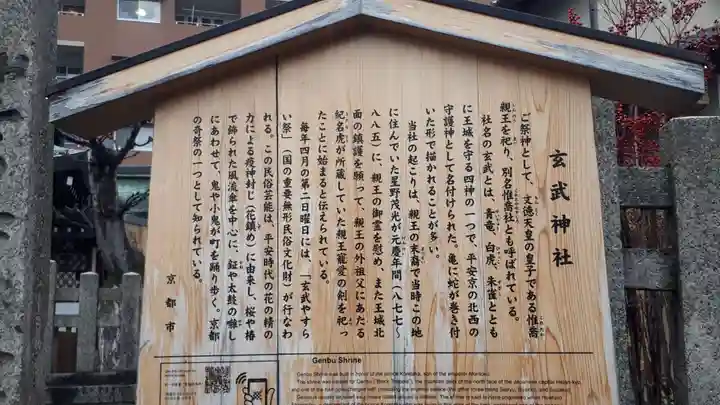 玄武神社
ご祭神として、文徳天皇の皇子である惟喬
親王を祀り、別名惟喬社とも呼ばれている。
社名の玄武とは、青竜、白虎、朱雀ととも
に王城を守る四神の一つで、平安京の北西の
守護神として名付けられた。亀に蛇が巻き付
いた形で描かれることが多い。
当社の起こりは、親王の末裔で当時この地
に住んでいた星野茂光が元慶年間(八七七〜
八八五)に、親王の御霊を慰め、また王城北
面の鎮護を願って、親王の外祖父にあたる
紀名虎が所蔵していた親王寵愛の剣を祀っ
たことに始まると伝えられている。
毎年四月の第二日曜日には、「玄武やすら
い祭」(国の重要無形民俗文化財)が行なわ
れる。この民俗芸能は、平安時代の花の精の
力による疫神封じ(花鎮め)に由来し、桜や椿
で飾られた風流傘を中心に、鉦や太鼓の囃し
にあわせて、鬼や小鬼が町を踊り歩く。京都
の奇祭の一つとして知られている。
京都市
Genbu Shrine